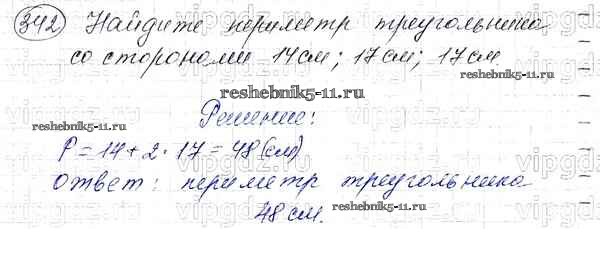 342 Найдите периметр треугольника
со сторонами 14 см; 17 см; 17 см.
reshebnik5-11.ru
reshebnik5-11.ru
Решение:
reshebnik5-11.ru
P = 14 + 2 · 17 = 48 (см)
Ответ: периметр треугольника
48 см.
reshebnik5-11.ru